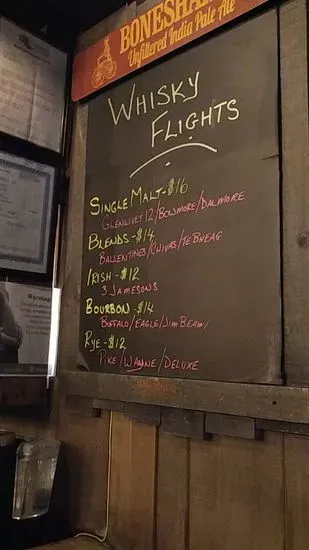 BONESHA
Unfiltered India Pale Ale
WHISKY
FLIGHTS
SINGLE MALT-$16
GLENLIVET 12/BOWMORE/DALMORE
BLENDS-$14
BALLENTINES/CHIVAS/TE BHEAG
IRISH-$12
3 JAMESONS
BOURBON-$14
BUFFALO/EAGLE/JIM BEAM
RYE-$12
PIKE/WAYNE/DELUXE
Warning